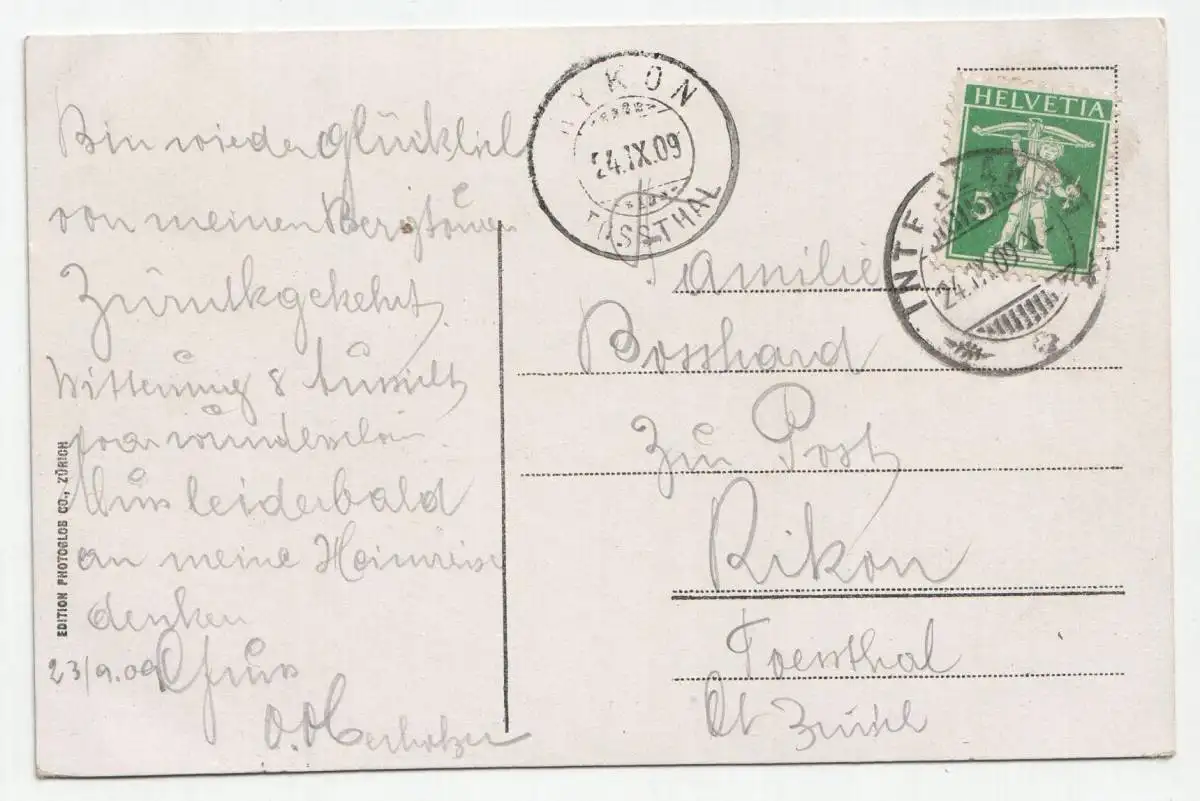 Bin wieder glücklich
von meinen Bergtouren
Zurückgekehrt,
Witterung & Aussicht
war wunderschön.
Muss leider bald
an meine Heimreise
denken
23/9.09 Gruss
O. Oberholzer
EDITION PHOTOGLOB CO., ZÜRICH
RYKON
24.IX.09
TÖSSTHAL
HELVETIA
5
INTERLAKEN
24.IX.09
Familie
Bosshard
Zur Post
Rikon
Toessthal
Ct Zürich